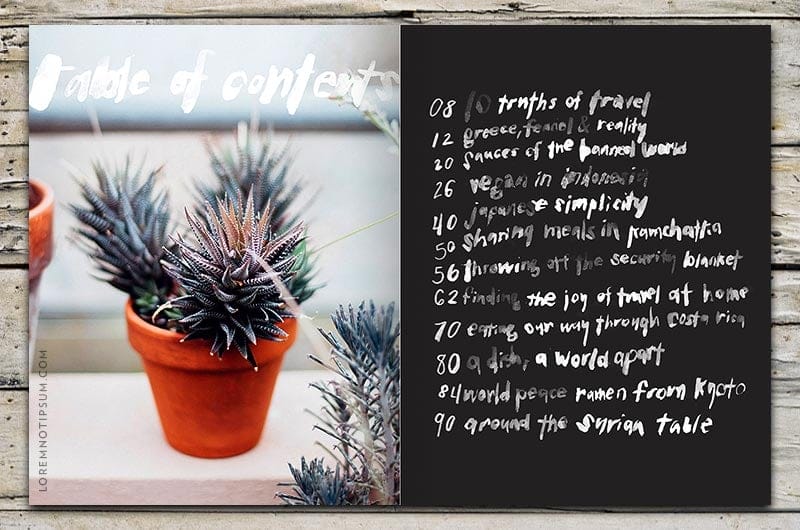 table of contents
LOREMNOTIPSUM.COM
08 10 truths of travel
12 greece, fennel & reality
20 sauces of the banned world
26 vegan in indonesia
40 japanese simplicity
50 sharing meals in kamchatka
56 throwing off the security blanket
62 finding the joy of travel at home
70 eating our way through costa rica
80 a dish, a world apart
84 world peace ramen from kyoto
90 around the syrian table